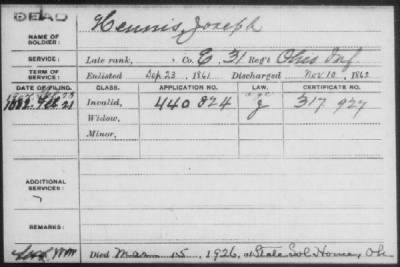 DEAD
NAME OF SOLDIER: Hennis, Joseph
SERVICE: Late rank, Co. E, 31 Reg't Ohio Inf.
TERM OF SERVICE: Enlisted Sep 23, 1861 Discharged Nov 10, 1862
DATE OF FILING. CLASS. APPLICATION NO. LAW. CERTIFICATE NO.
1882 Feb 21 Invalid, 440 824 g 317 927
Widow,
Minor,
ADDITIONAL SERVICES:
REMARKS:
Died Mar 15, 1926, at State Sol Home, Oh